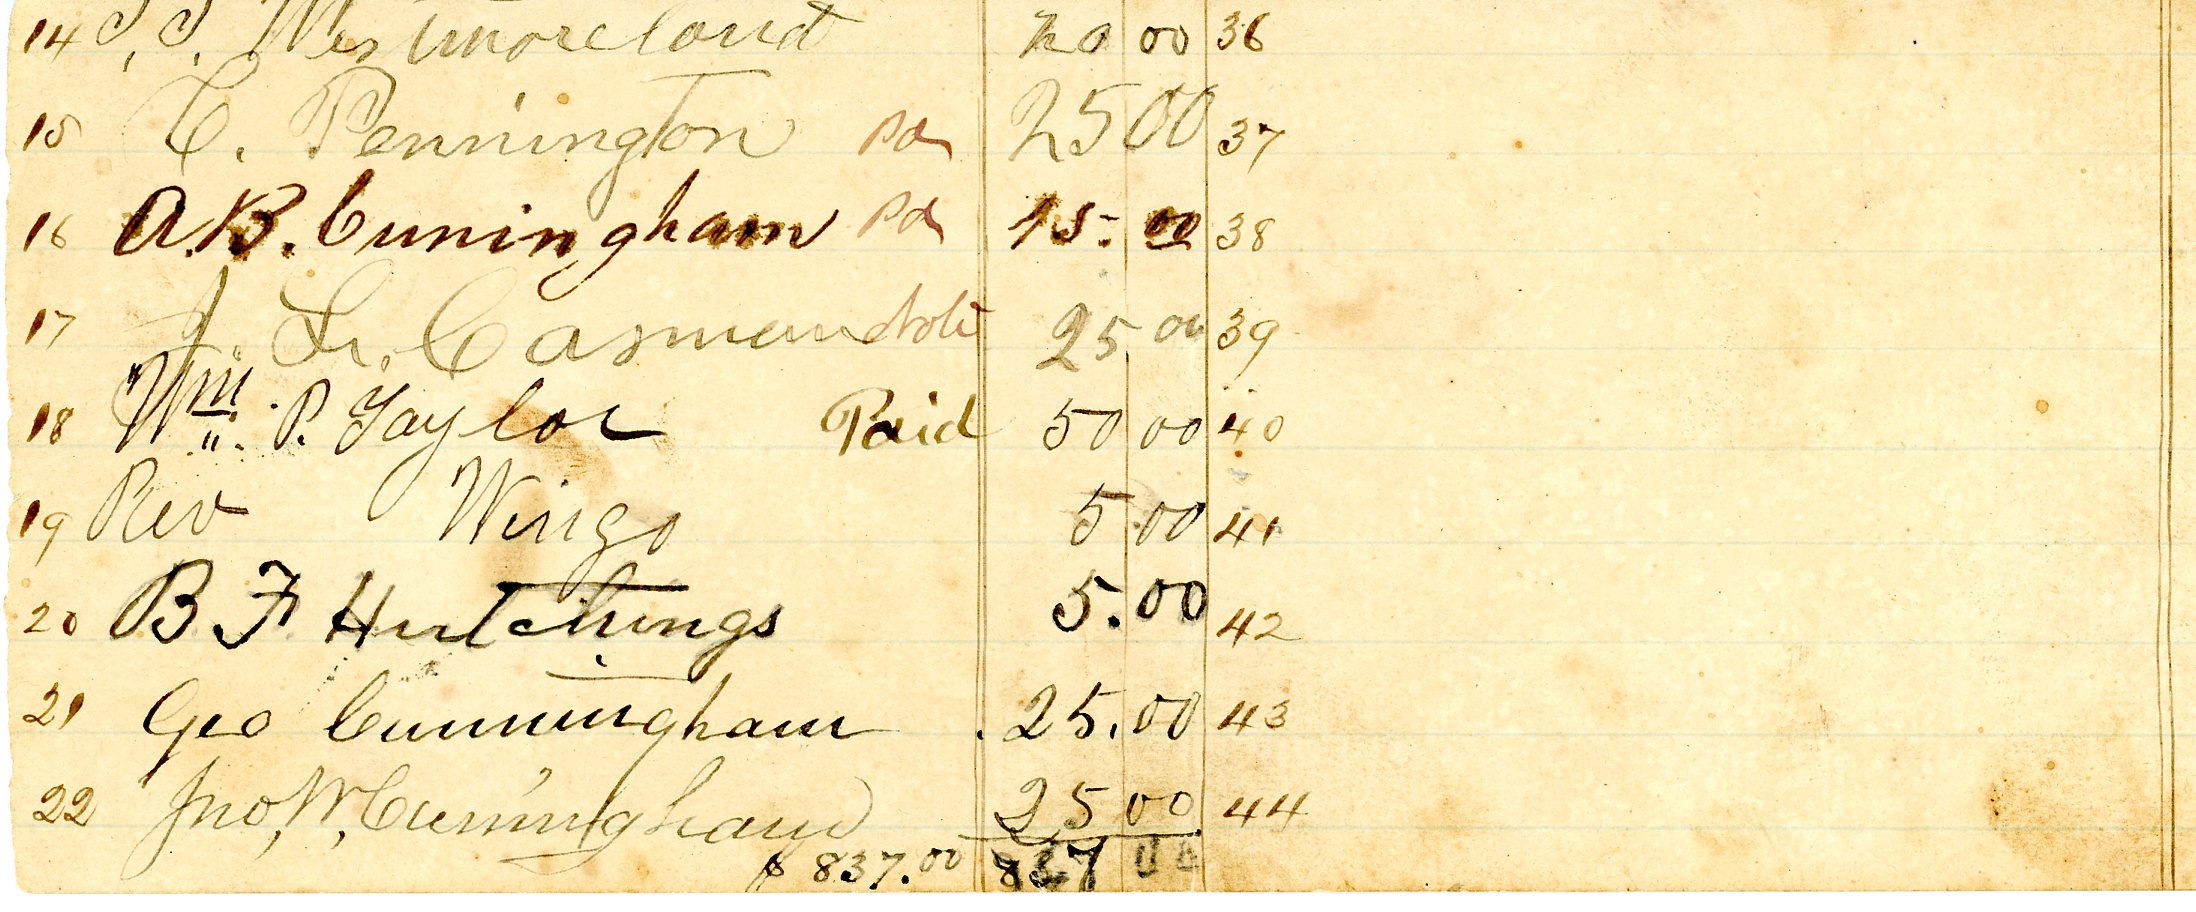 14 J, J. Westmoreland 20 00 36
15 C. Pennington Pd 25 00 37
16 A. B. Cuningham Pd 15. 00 38
17 J. Casman Note 25 00 39
18 Wm. P. Taylor Paid 50 00 40
19 Rev Wingo 5 00 41
20 B F Hutchings 5.00 42
21 Geo Cunningham 25.00 43
22 Jno, W, Cuningham 25 00 44
$ 837.00 837 00